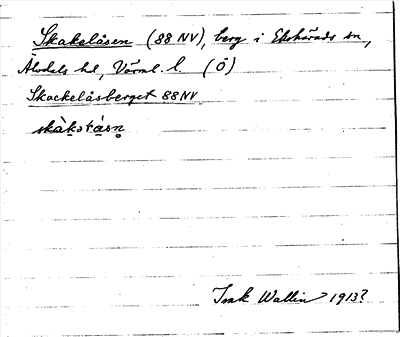 Skakelåsen (88 NV), berg i Ekshärads sn,
Älvdals hd, Värml. l. (Ö)
Skackelåsberget 88 NV
Isak Wallin 1913?